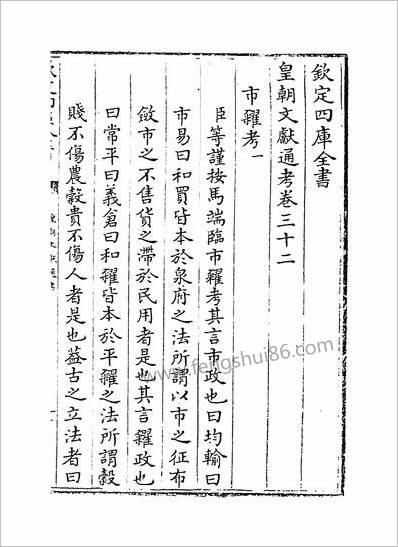 欽定四庫全書
皇朝文獻通考卷三十二
市糴考一
臣等謹按馬端臨市糴考其言市政也曰均輸曰
市易曰和買皆本於泉府之法所謂以市之征布
斂市之不售貨之滯於民用者是也其言糴政也
曰常平曰義倉曰和糴皆本於平糴之法所謂穀
賤不傷農穀貴不傷人者是也葢古之立法者曰
www.fengshui86.com